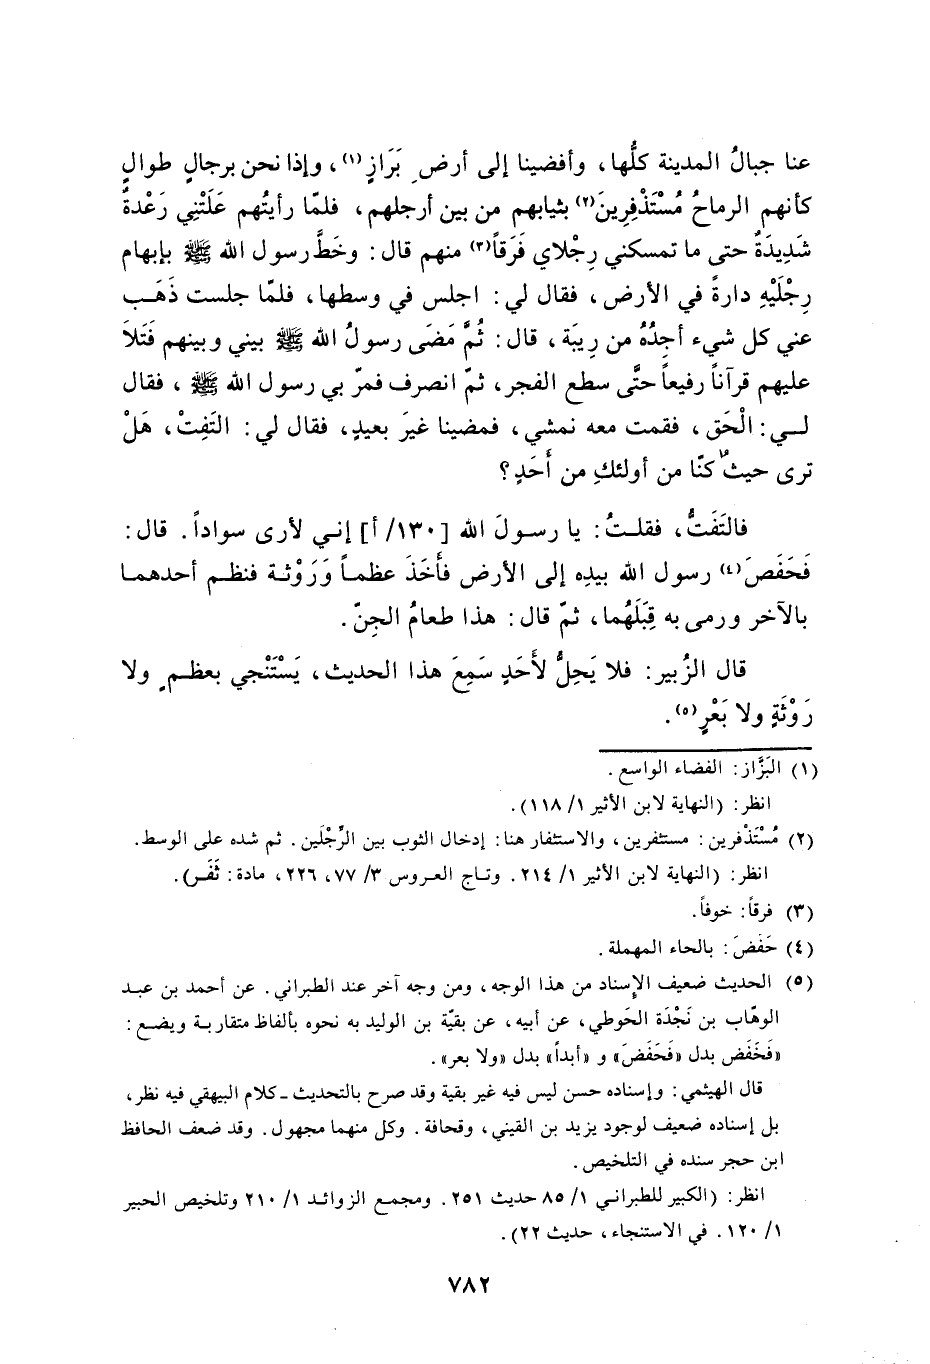 عنا جبالُ المدينة كلُّها، وأفضينا إلى أرضِ بَرَازٍ(١)، وإذا نحن برجالٍ طوالٍ
كأنهم الرماحُ مُسْتَذْفِرِينَ(٢) بثيابهم من بين أرجلهم، فلمّا رأيتُهم عَلَتْنِي رَعْدةٌ
شَدِيدَةٌ حتى ما تمسكني رِجْلاي فَرَقاً(٣) منهم قال: وخَطَّ رسول الله ﷺ بإبهام
رِجْلَيْهِ دارةً في الأرض، فقال لي: اجلس في وسطها، فلمّا جلست ذَهَب
عني كل شيء أجِدُهُ من رِيبَة، قال: ثُمَّ مَضَى رسولُ الله ﷺ بيني وبينهم فَتَلاَ
عليهم قرآناً رفيعاً حتَّى سطع الفجر، ثمّ انصرف فمرّ بي رسول الله ﷺ، فقال
لي: الْحَق، فقمت معه نمشي، فمضينا غيرَ بعيدٍ، فقال لي: التَفِتْ، هَلْ
ترى حيثُ كنّا من أولئكِ من أَحَدٍ؟
فالتَفَتُّ، فقلتُ: يا رسولَ الله [١٣٠/ أ] إني لأرى سواداً. قال:
فَحَفَصَ(٤) رسول الله بيدِه إلى الأرض فأَخَذَ عظماً وَرَوْثة فنظم أحدهما
بالآخر ورمى به قِبَلَهُما، ثمّ قال: هذا طعامُ الجِنّ.
قال الزُبير: فلا يَحِلُّ لأَحَدٍ سَمِعَ هذا الحديث، يَسْتَنْجي بعظمٍ ولا
رَوْثَةٍ ولا بَعْرٍ(٥).
(١) البَزَّاز: الفضاء الواسع.
انظر: (النهاية لابن الأثير ١/ ١١٨).
(٢) مُسْتَذْفرين: مستثفرين، والاستثفار هنا: إدخال الثوب بين الرِّجْلَين. ثم شده على الوسط.
انظر: (النهاية لابن الأثير ١/ ٢١٤. وتاج العروس ٣/ ٧٧، ٢٢٦، مادة: ثَفَر).
(٣) فرقاً: خوفاً.
(٤) حَفَصَ: بالحاء المهملة.
(٥) الحديث ضعيف الإسناد من هذا الوجه، ومن وجه آخر عند الطبراني. عن أحمد بن عبد
الوهّاب بن نَجْدَة الحَوطي، عن أبيه، عن بقيّة بن الوليد به نحوه بألفاظ متقاربة ويضع:
«فَخَفَض بدل «فَحَفَصَ» و «أبداً» بدل «ولا بعر».
قال الهيثمي: وإسناده حسن ليس فيه غير بقية وقد صرح بالتحديث ـ كلام البيهقي فيه نظر،
بل إسناده ضعيف لوجود يزيد بن القيني، وقحافة. وكل منهما مجهول. وقد ضعف الحافظ
ابن حجر سنده في التلخيص.
انظر: (الكبير للطبراني ١/ ٨٥ حديث ٢٥١. ومجمع الزوائد ١/ ٢١٠ وتلخيص الحبير
١/ ١٢٠. في الاستنجاء، حديث ٢٢).
٧٨٢